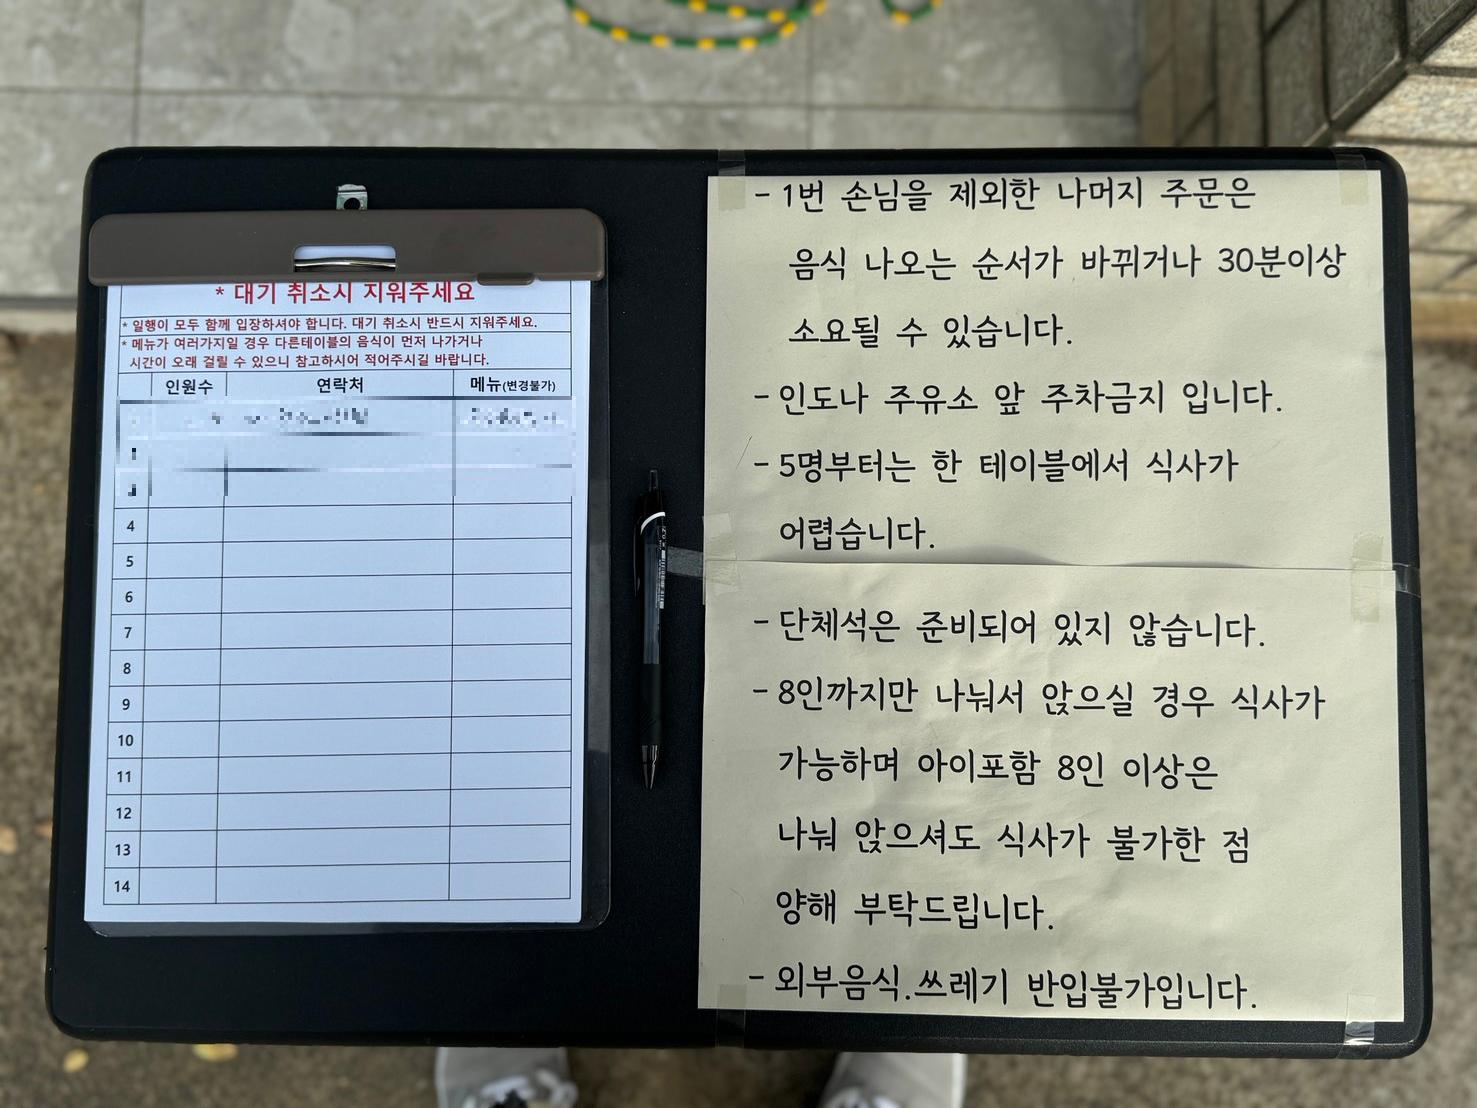 * 대기 취소시 지워주세요
* 일행이 모두 함께 입장하셔야 합니다. 대기 취소시 반드시 지워주세요.
* 메뉴가 여러가지일 경우 다른테이블의 음식이 먼저 나가거나
시간이 오래 걸릴 수 있으니 참고하시어 적어주시길 바랍니다.
인원수 연락처 메뉴(변경불가)
4
5
6
7
8
9
10
11
12
13
14
- 1번 손님을 제외한 나머지 주문은
음식 나오는 순서가 바뀌거나 30분이상
소요될 수 있습니다.
- 인도나 주유소 앞 주차금지 입니다.
- 5명부터는 한 테이블에서 식사가
어렵습니다.
- 단체석은 준비되어 있지 않습니다.
- 8인까지만 나눠서 앉으실 경우 식사가
가능하며 아이포함 8인 이상은
나눠 앉으셔도 식사가 불가한 점
양해 부탁드립니다.
- 외부음식.쓰레기 반입불가입니다.